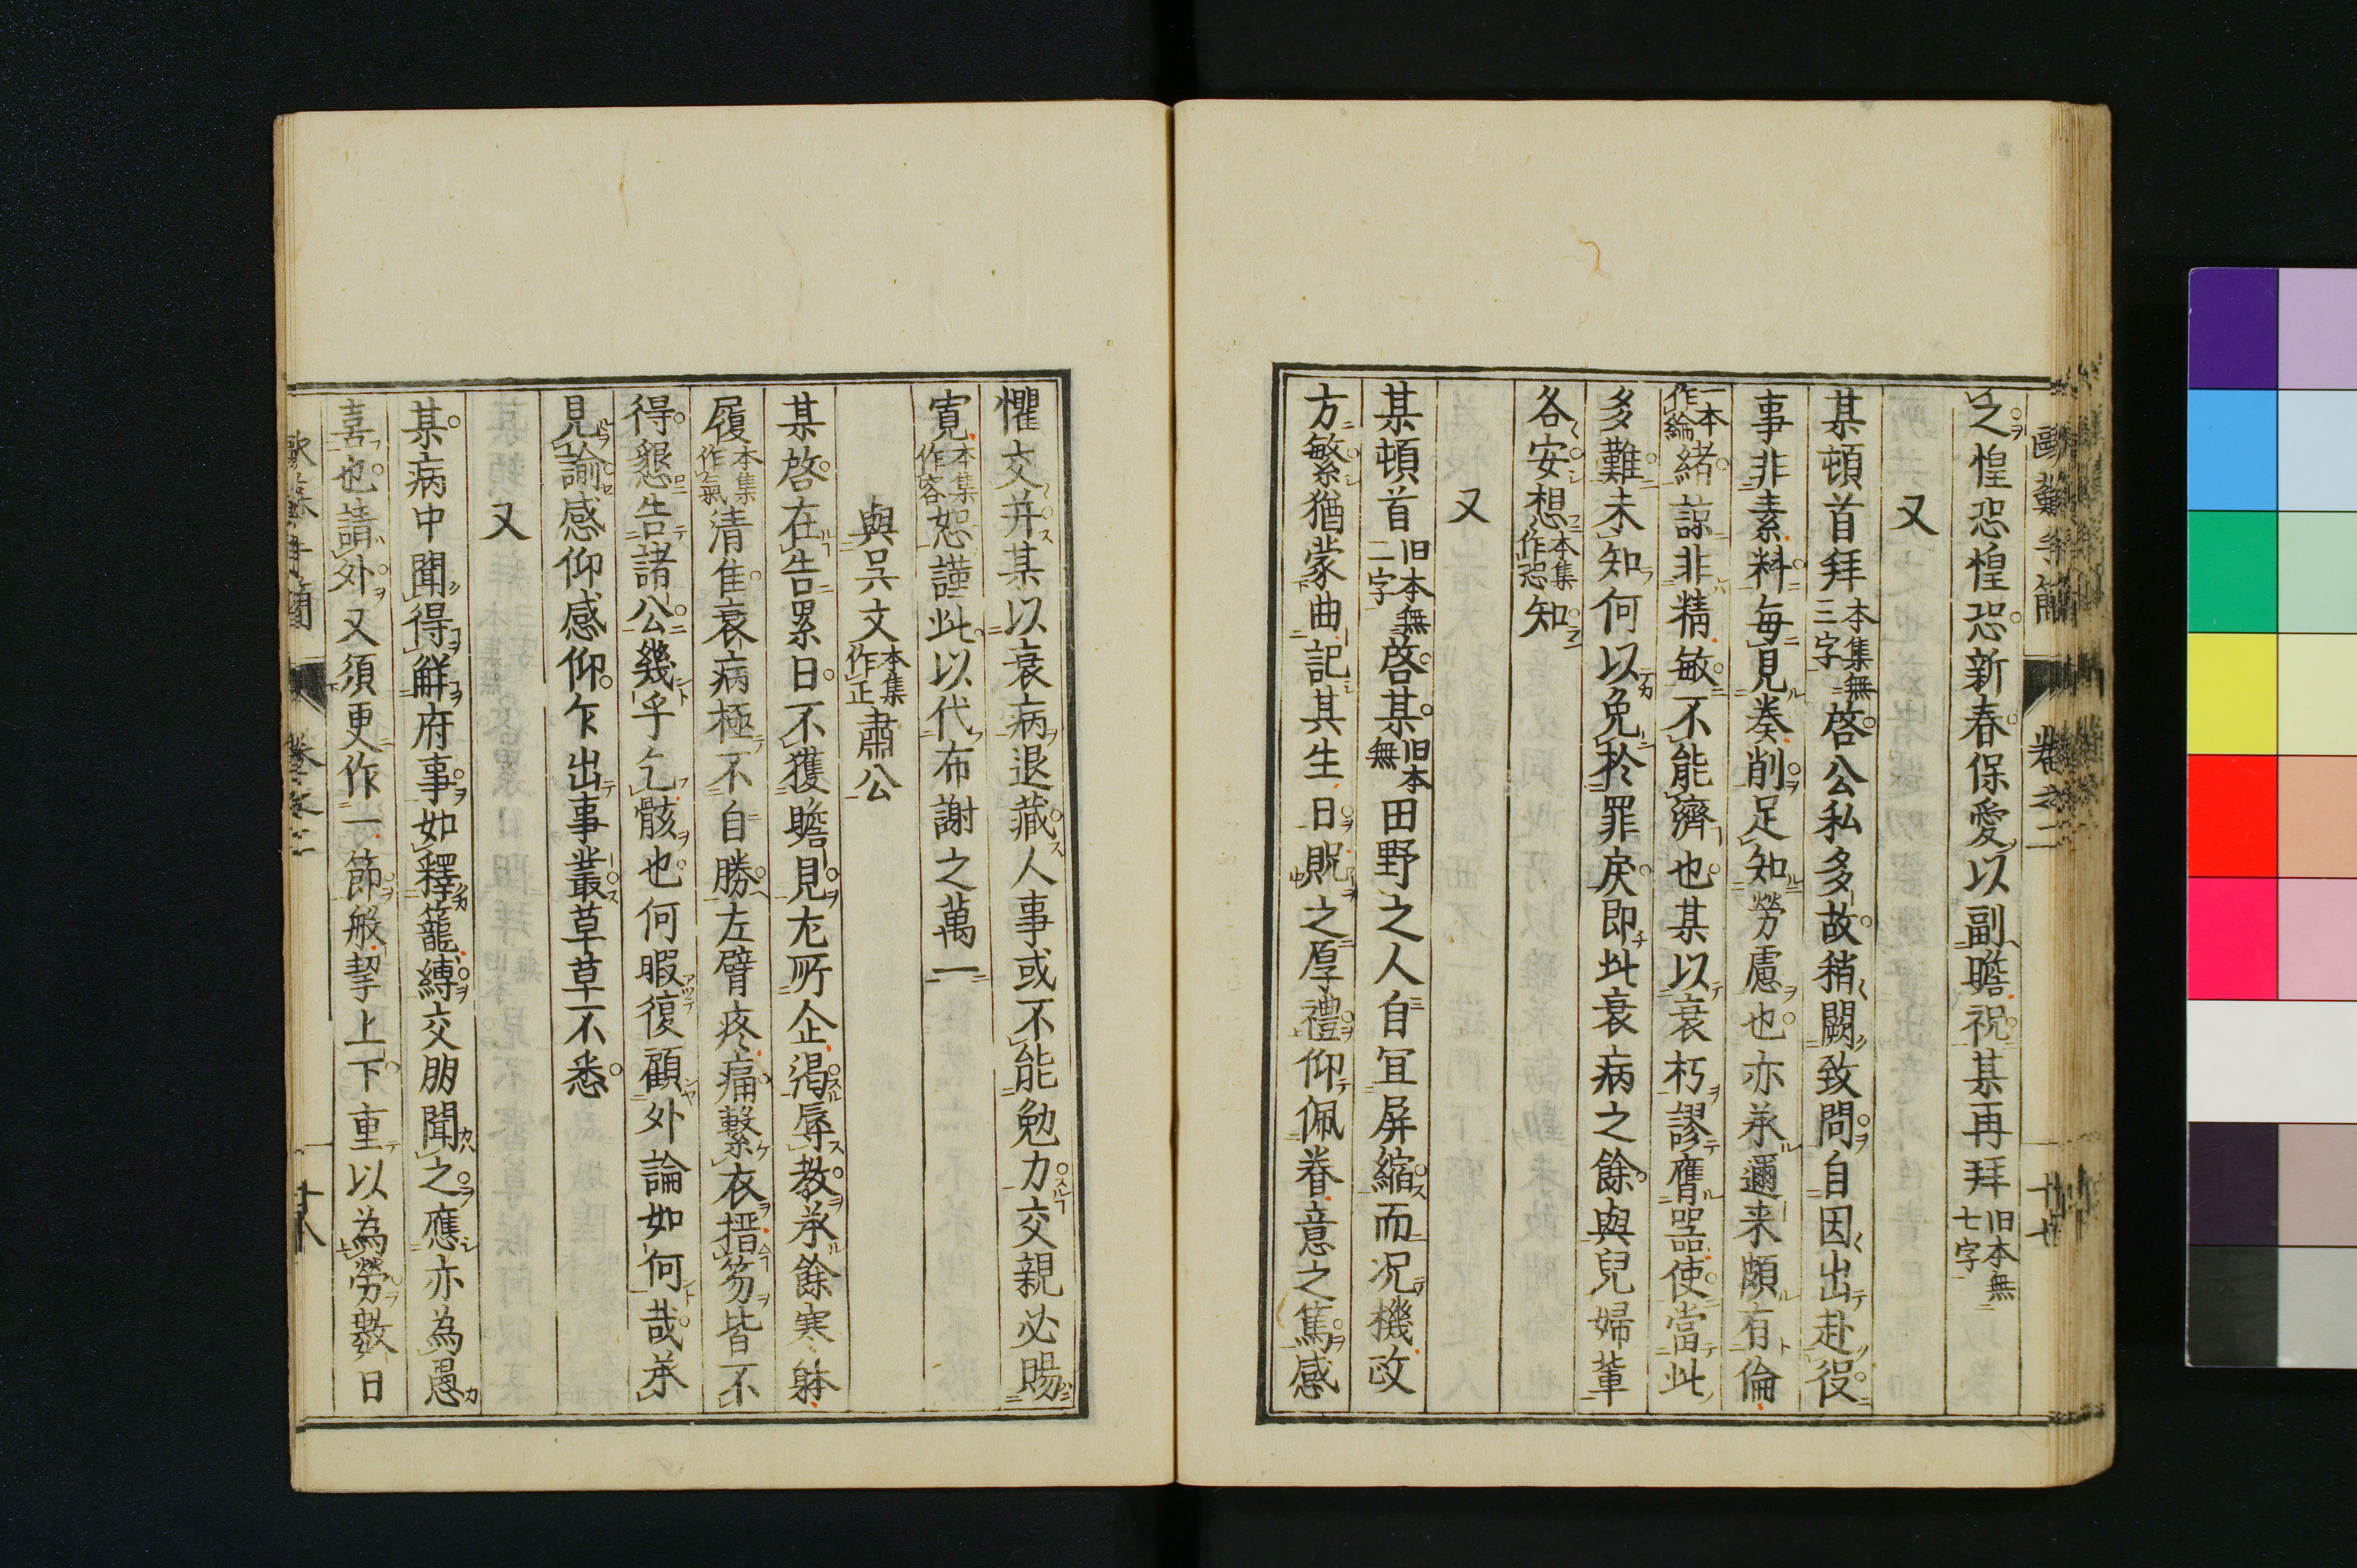 歐蘇手簡 卷之二 廿七
之惶恐惶恐新春保愛以副瞻祝某再拜旧本無七字
又
某頓首拜本集無三字啓公私多故稍闕致問自因出赴役
事非素料每見奏削足知勞慮也亦承邇来頗有倫
一本作綸緒諒非精敏不能濟也某以衰朽謬膺器使當此
多難未知何以免於罪戾即此衰病之餘與兒婦輩
各安想本集作恐知
又
某頓首旧本無二字啓某旧本無田野之人自宜屏縮而况機政
方繁猶蒙曲記其生日貺之厚禮仰佩眷意之篤感
懼交并某以衰病退藏人事或不能勉力交親必賜
寛本集作容恕謹此以代布謝之萬一
與呉文本集作正肅公
某啓在告累日不獲瞻見尤所企渴辱教承餘寒躰
履本集作氣清隹衰病極不自勝左臂疼痛繫衣搢笏皆不
得懇告諸公幾乎乞骸也何暇復顧外論如何哉承
見諭感仰感仰乍出事叢草草不悉
又
某病中聞得鮮府事如釋籠縛交朋聞之應亦為愚
喜也請外又須更作一節般挈上下重以為勞數日
歐蘇手簡 卷之二 廿八